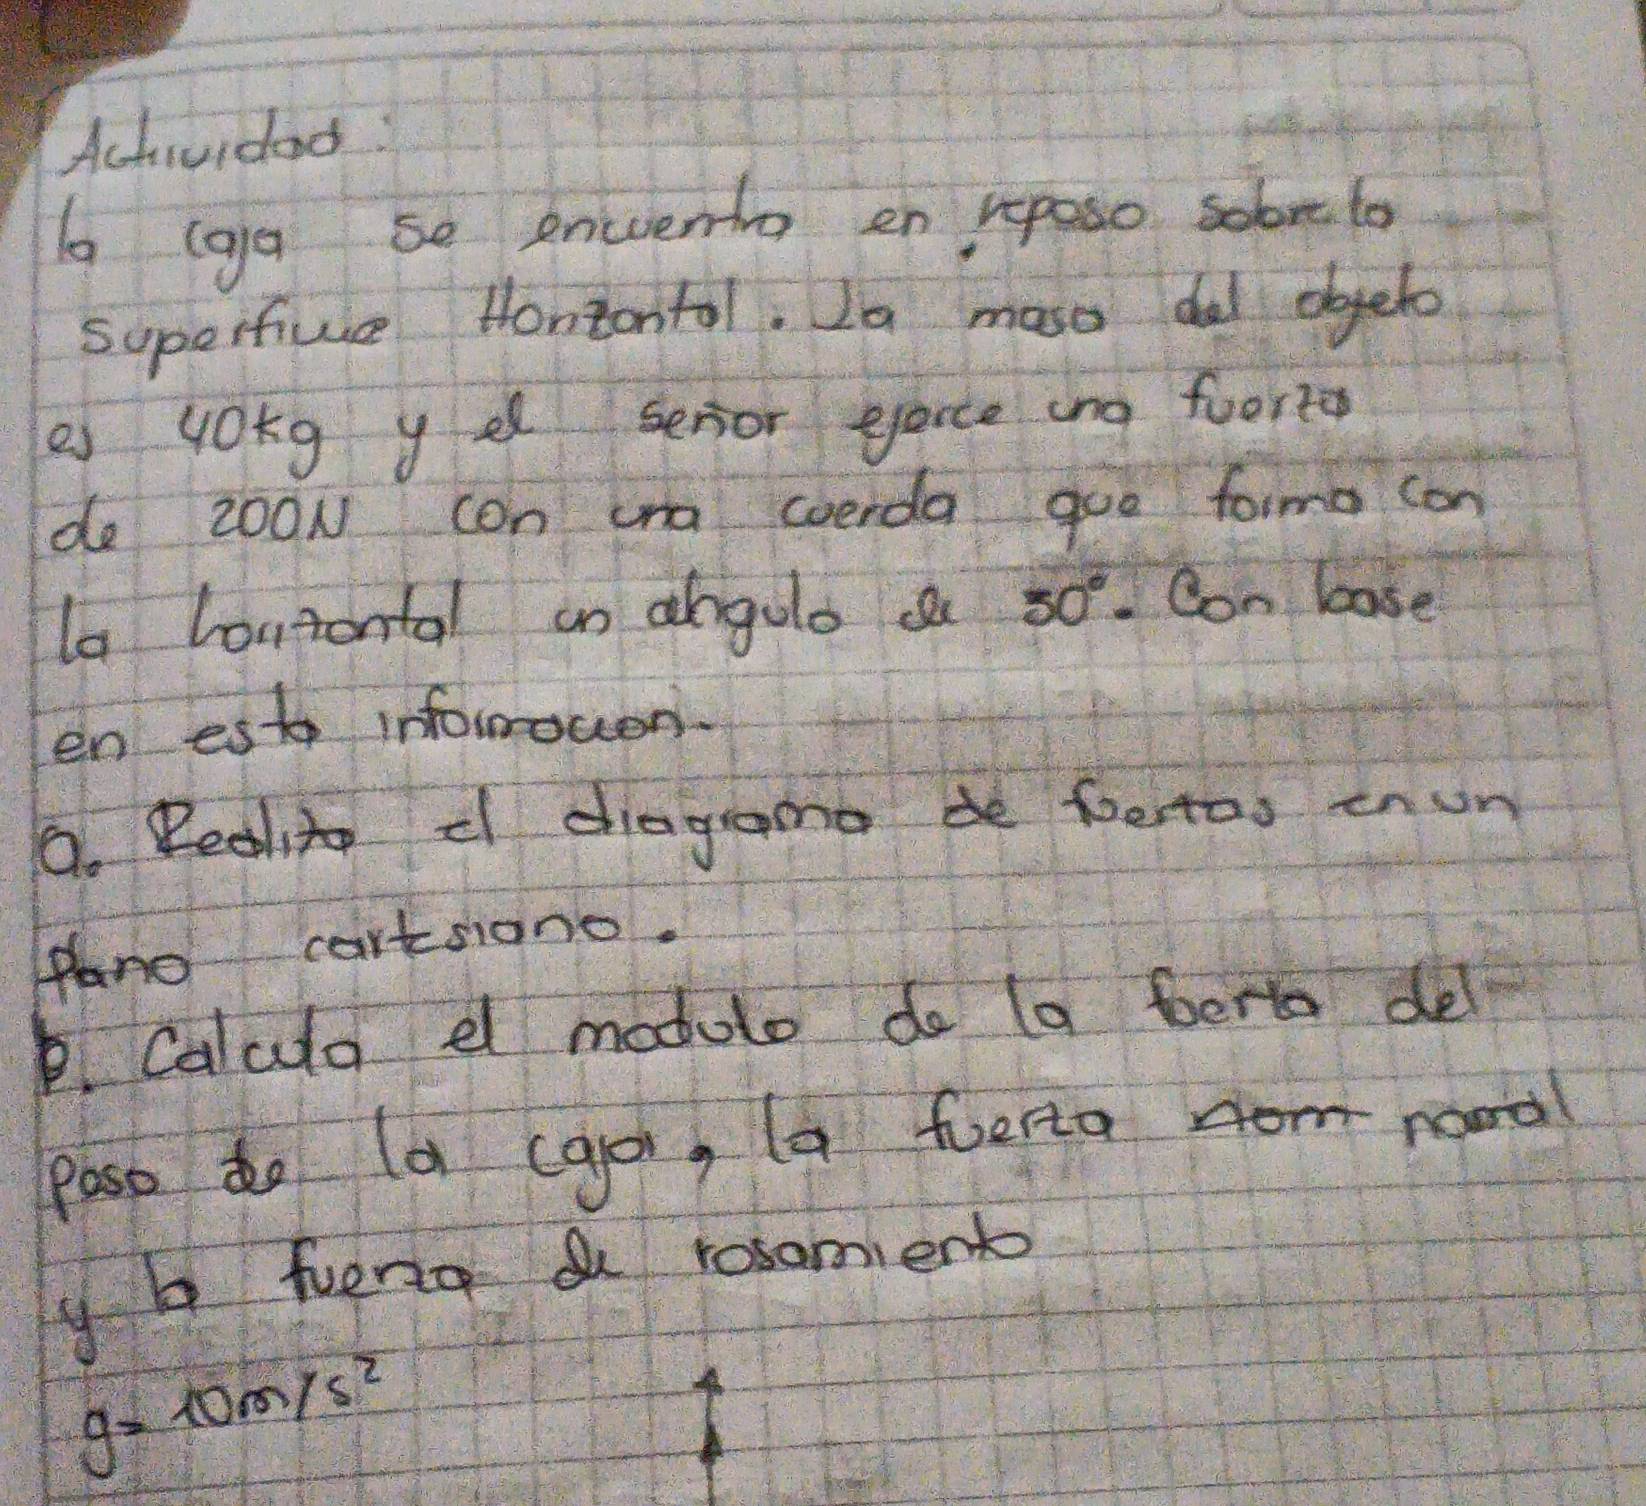 Actividad:
la caja se encuentra en reposo sobre la
superficie Horizontal. La masa del objeto
es 40kg y el señor ejerce una fuerza
de 200N con una cuerda que forma con
la horizontal un angulo de 30°. Con base
en esta informacion.
a. Realiza el diagrama de fuerzas en un
plano cartesiano.
b. Calcula el modulo de la fuerza del
peso de la caja, la fuerza nom normal
y la fuerza de rosamiento
g= 10m/s²